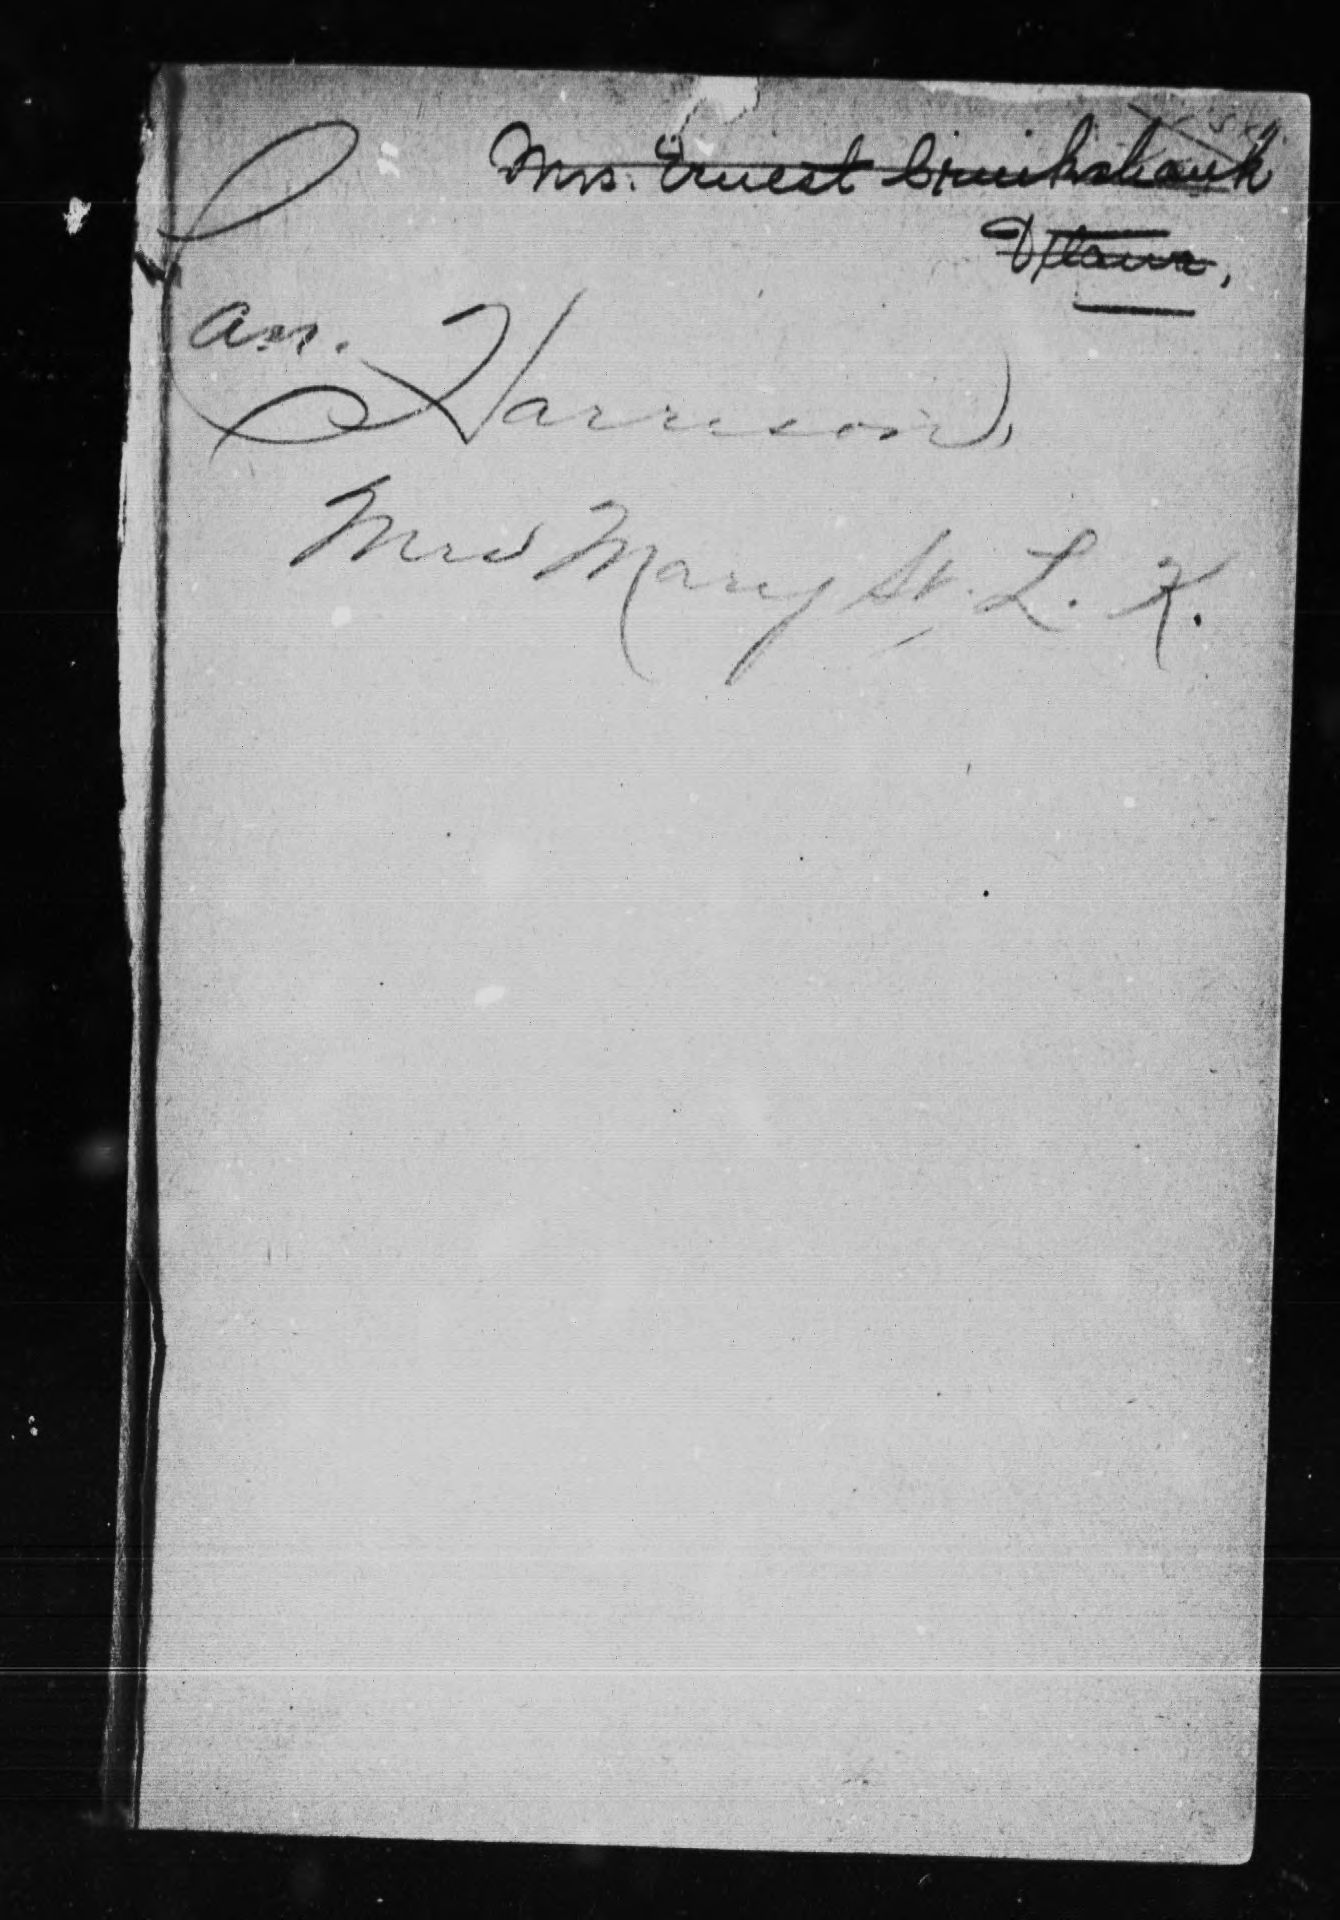 Mrs. Ernest Cruikshank
Ottawa,
an.
Harrison,
Mrs Mary St. L. K.